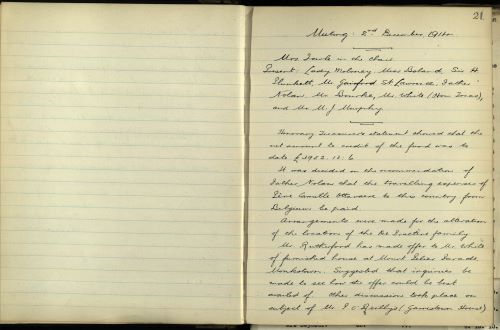 21
Meeting: 2nd December, 1914.
Mrs Fowle in the chair
Present: Lady Moloney, Miss Boland, Sir H.
Plunkett, Mr Gaisford St Lawrence, Father
Nolan, Mr Bourke, Mr White (Hon Treas),
and Mr M. J. Murphy.
Honorary Treasurer's statement showed that the
net amount to credit of the fund was to
date £1952. 12. 6
It was decided on the recommendation of
Father Nolan that the travelling expenses of
Camille to this country from
Belgium be paid.
Arrangements were made for the alteration
of the location of the De family
Mr Rutherford has made offer to Mr White
of furnished house at Mount Parade,
Monkstown. Suggested that inquiries be
made to see how the offer could be best
availed of. Other discussions took place on
subject of Mr O'Reilly's (Gamestown House)